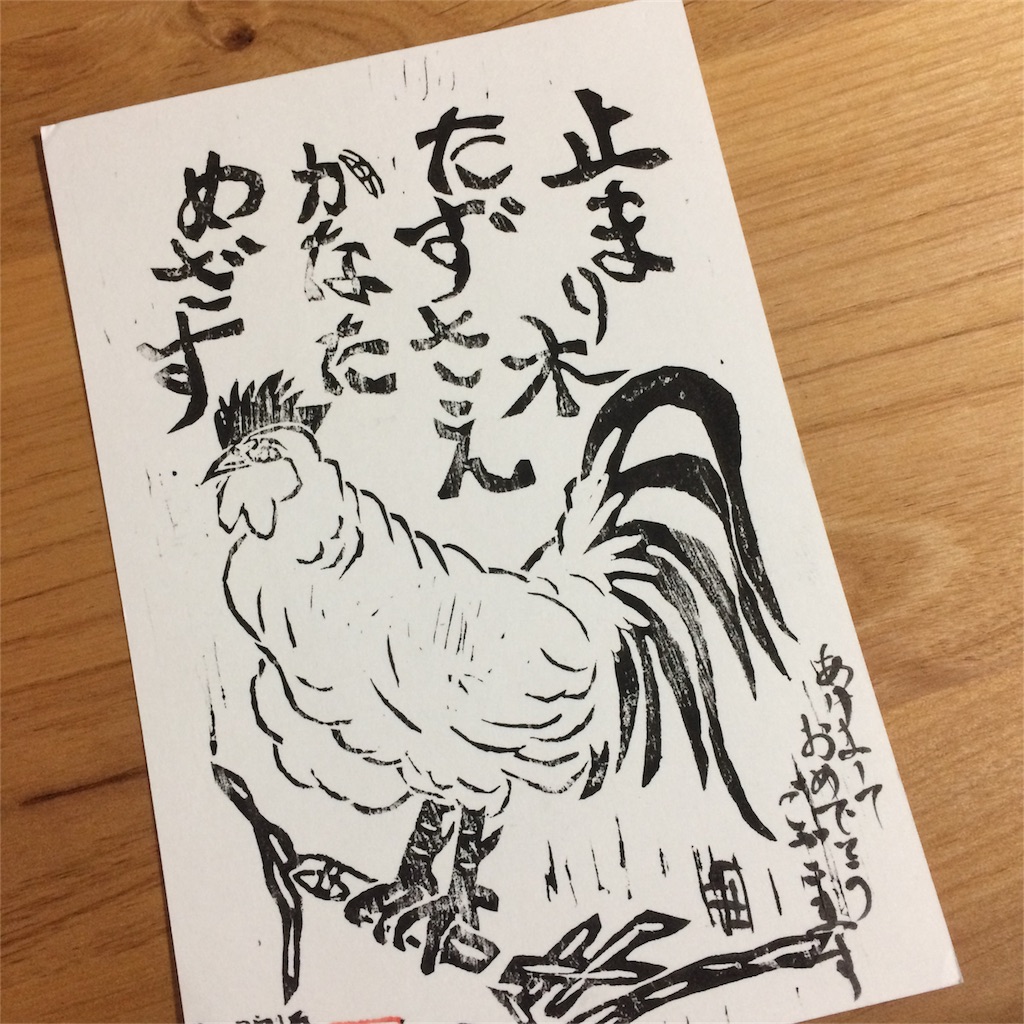 止まり木
たずさえ
かなた
めざす
あけまして
おめでとう
ございます
酉